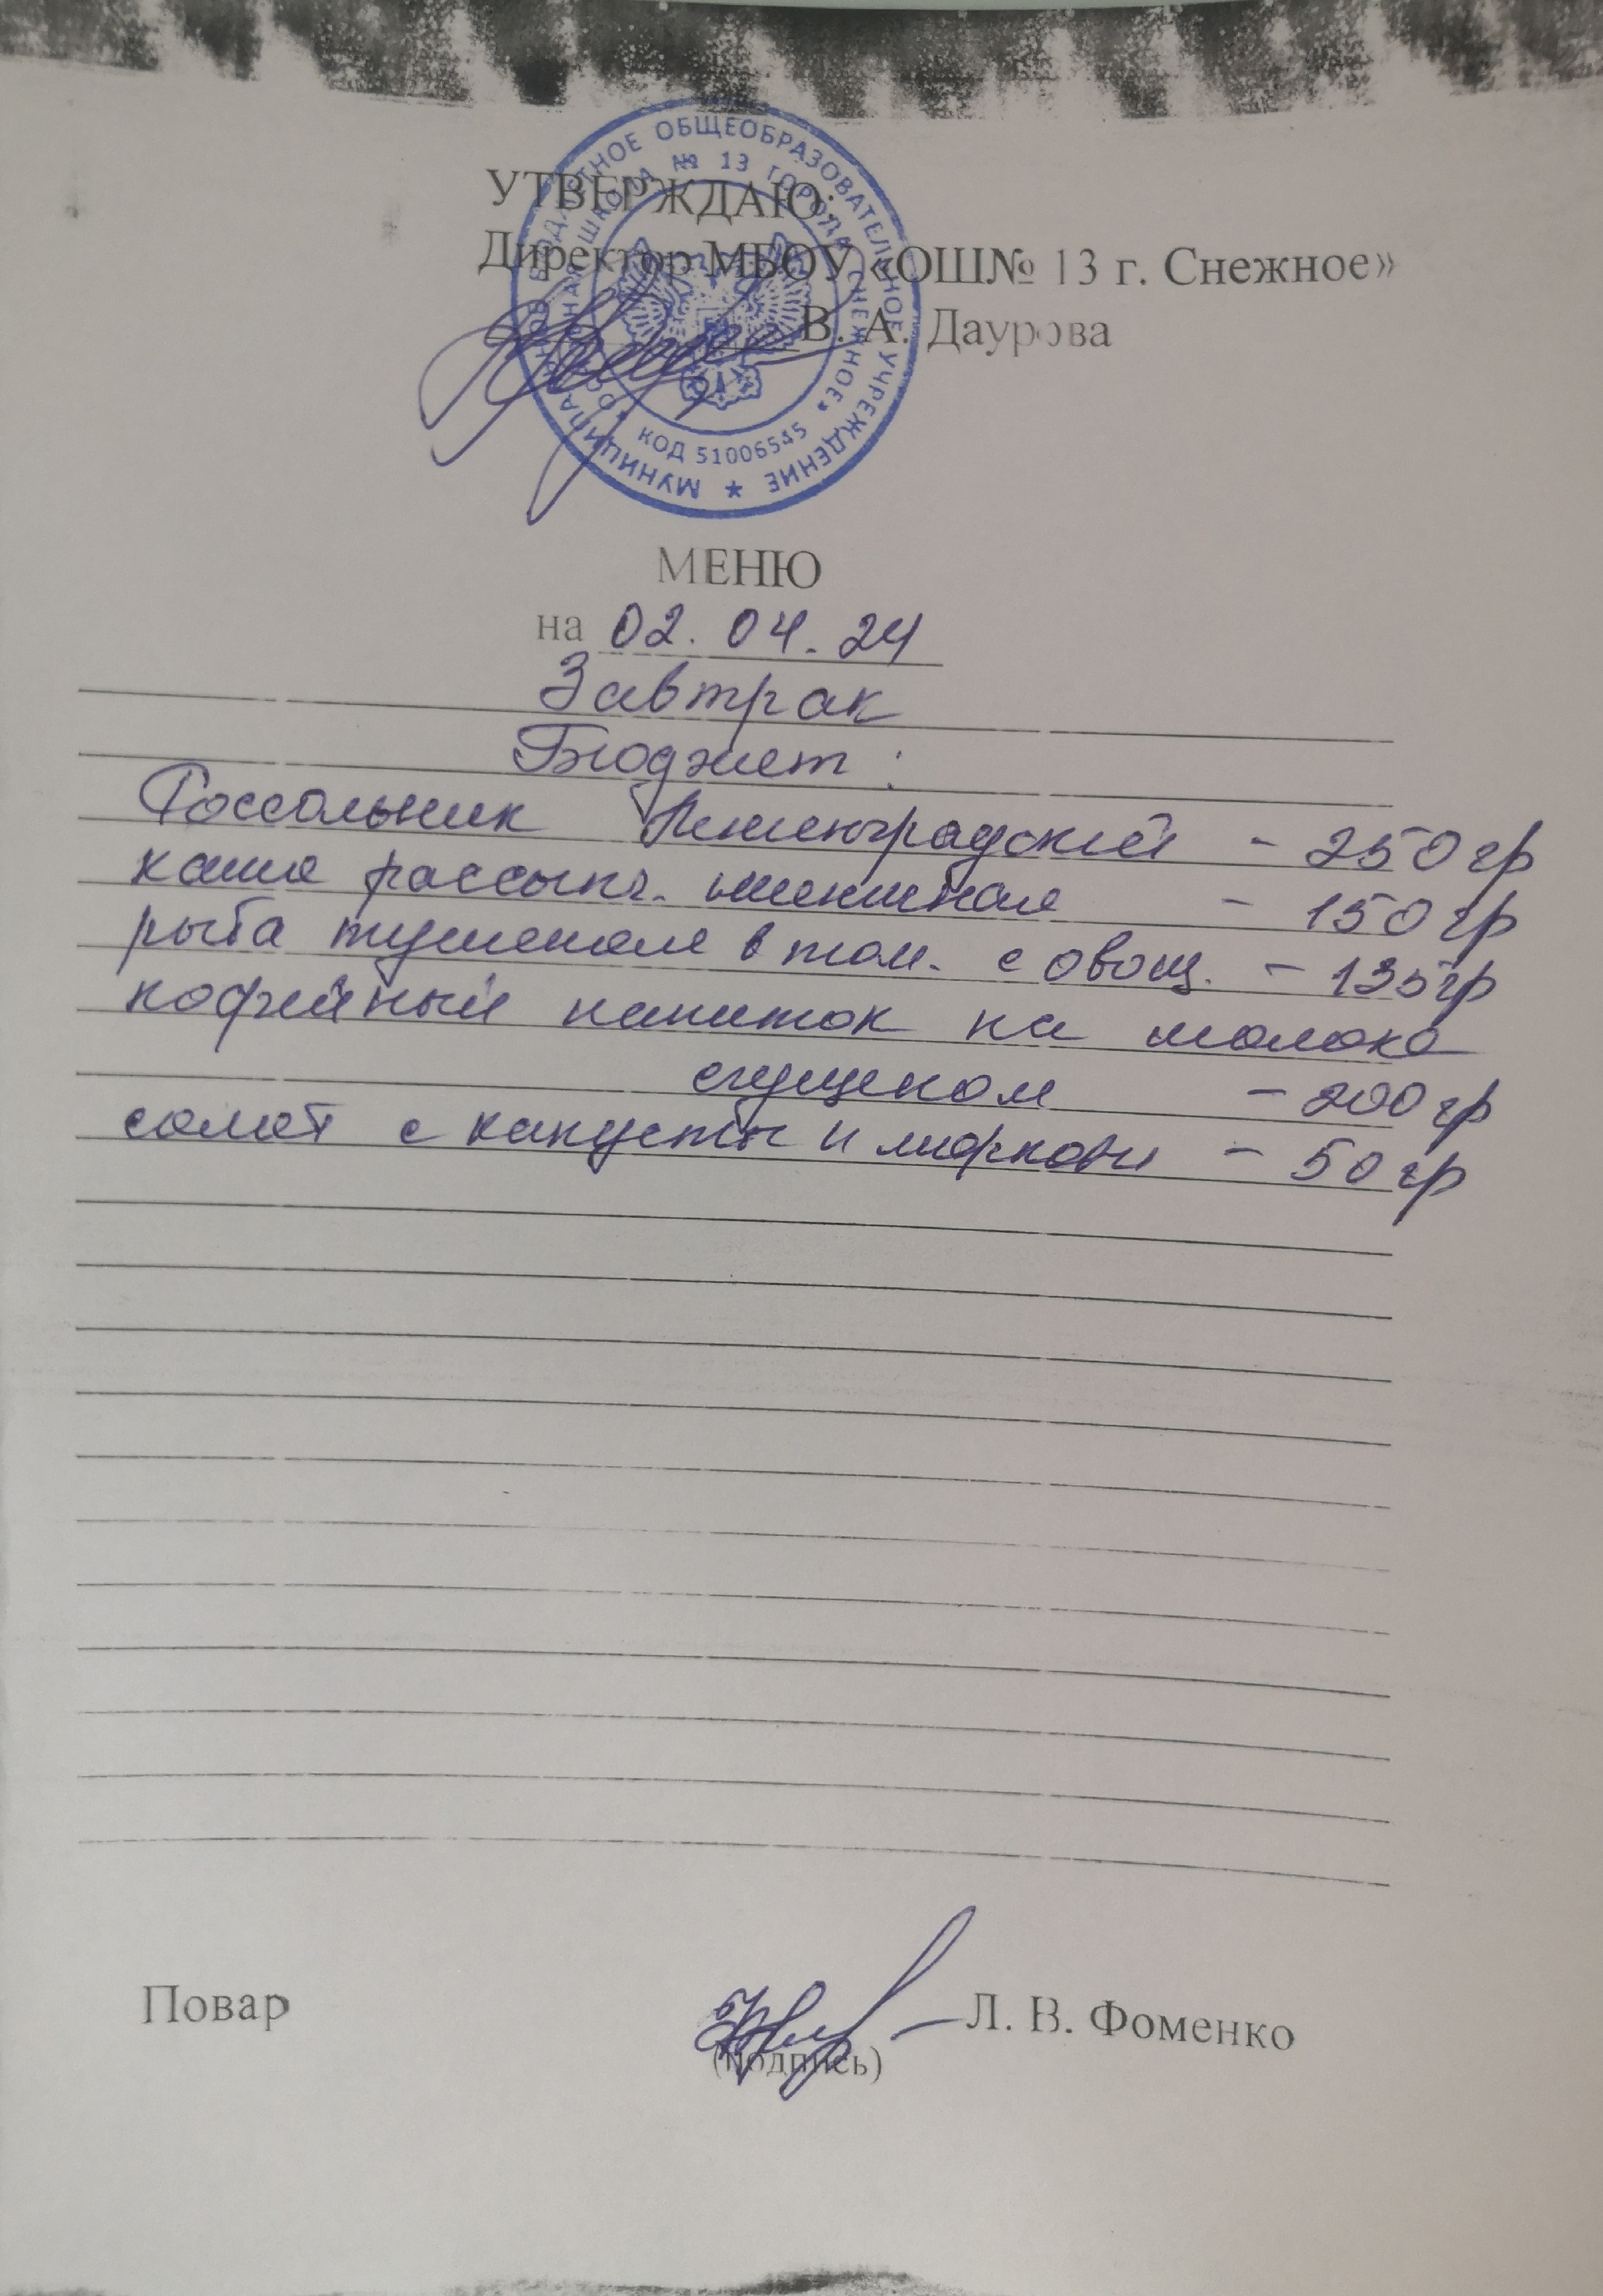 УТВЕРЖДАЮ:
Директор МБОУ «ОШ№ 13 г. Снежное»
В. А. Даурова
МУНИЦИПАЛЬНОЕ БЮДЖЕТНОЕ ОБЩЕОБРАЗОВАТЕЛЬНОЕ УЧРЕЖДЕНИЕ
ШКОЛА № 13 ГОРОДА СНЕЖНОЕ»
КОД 51006545
МЕНЮ
на 02.04.24
Завтрак
Бюджет:
Россольник Ленинградский - 250 гр
каша рассыпч. пшеничная - 150 гр
рыба тушеная в том. с овощ. - 135 гр
кофейный напиток на молоке
сгущеном - 200 гр
салат с капусты и моркови - 50 гр
Повар
Л. В. Фоменко
(подпись)